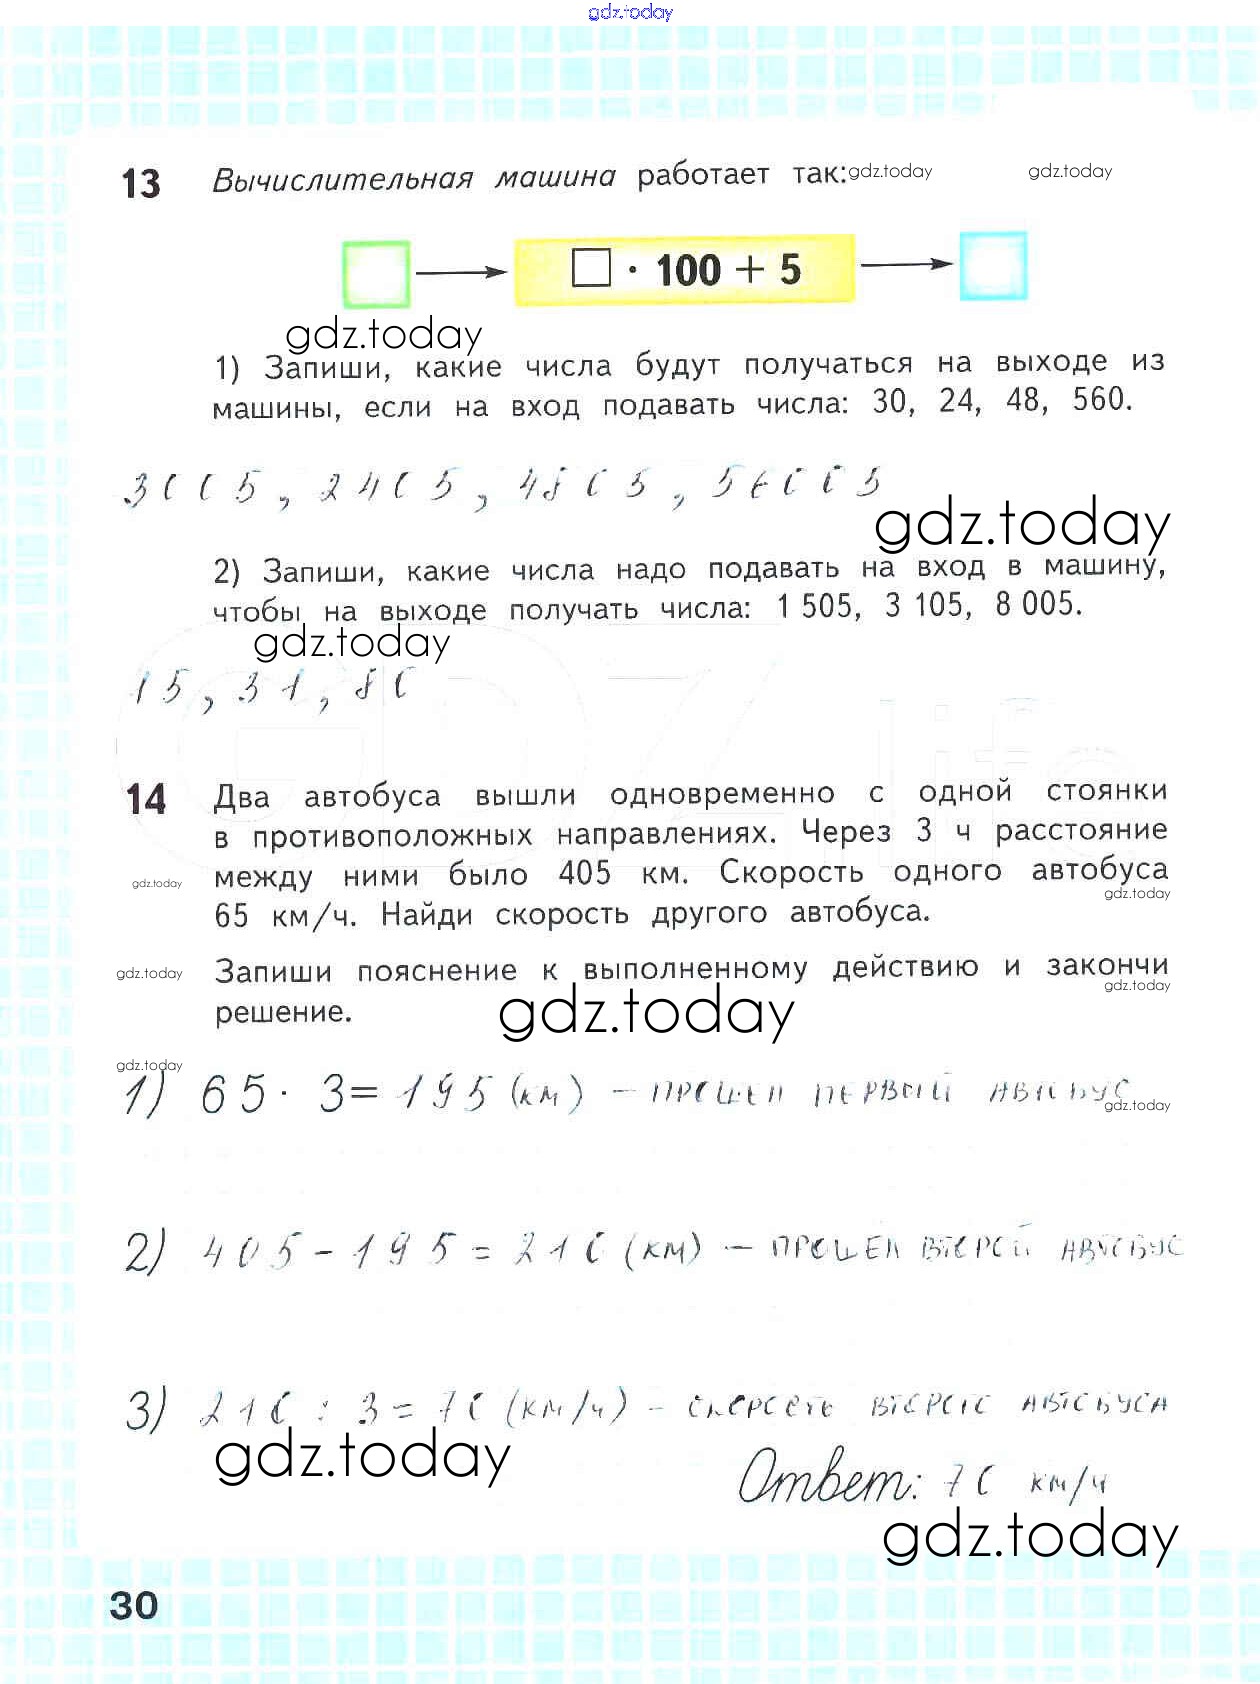 gdz.today
13 Вычислительная машина работает так: gdz.today gdz.today
□ · 100 + 5
gdz.today
1) Запиши, какие числа будут получаться на выходе из
машины, если на вход подавать числа: 30, 24, 48, 560.
3005, 2405, 4805, 56005
gdz.today
2) Запиши, какие числа надо подавать на вход в машину,
чтобы на выходе получать числа: 1 505, 3 105, 8 005.
gdz.today
15, 31, 80
GDZ.life
14 Два автобуса вышли одновременно с одной стоянки
в противоположных направлениях. Через 3 ч расстояние
gdz.today между ними было 405 км. Скорость одного автобуса
gdz.today
65 км/ч. Найди скорость другого автобуса.
gdz.today Запиши пояснение к выполненному действию и закончи
gdz.today
решение. gdz.today
gdz.today
1) 65 · 3 = 195 (км) – прошел первый автобус
gdz.today
2) 405 – 195 = 210 (км) – прошел второй автобус
3) 210 : 3 = 70 (км/ч) – скорость второго автобуса
gdz.today
Ответ: 70 км/ч
gdz.today
30